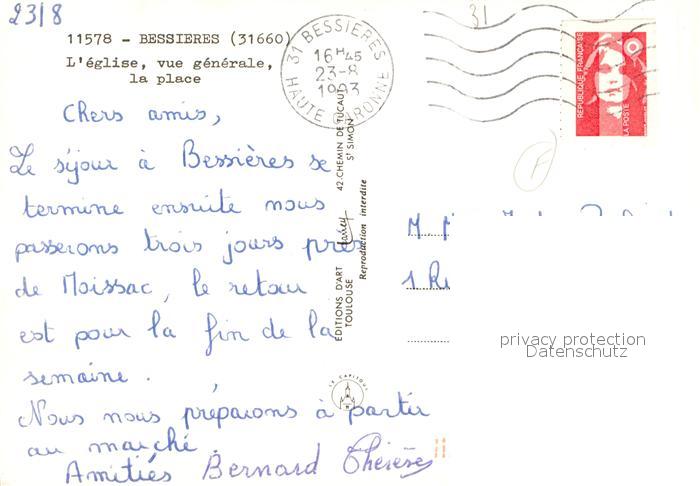 23/8
31
11578 - BESSIERES (31660)
L'église, vue générale,
la place
31 BESSIERES
16H45
23-8
1993
HAUTE GARONNE
REPUBLIQUE FRANÇAISE
LA POSTE
F
Chers amis,
Le séjour à Bessières se
termine ensuite nous
passerons trois jours près
de Moissac, le retour
est pour la fin de la
semaine.
Nous nous préparons à partir
au marché.
Amitiés Bernard Thérèse
EDITIONS D'ART larrey 42, CHEMIN DE TUCAUT
TOULOUSE ST SIMON
Reproduction interdite
LE CAPITOLE
M.
1 R
privacy protection
Datenschutz